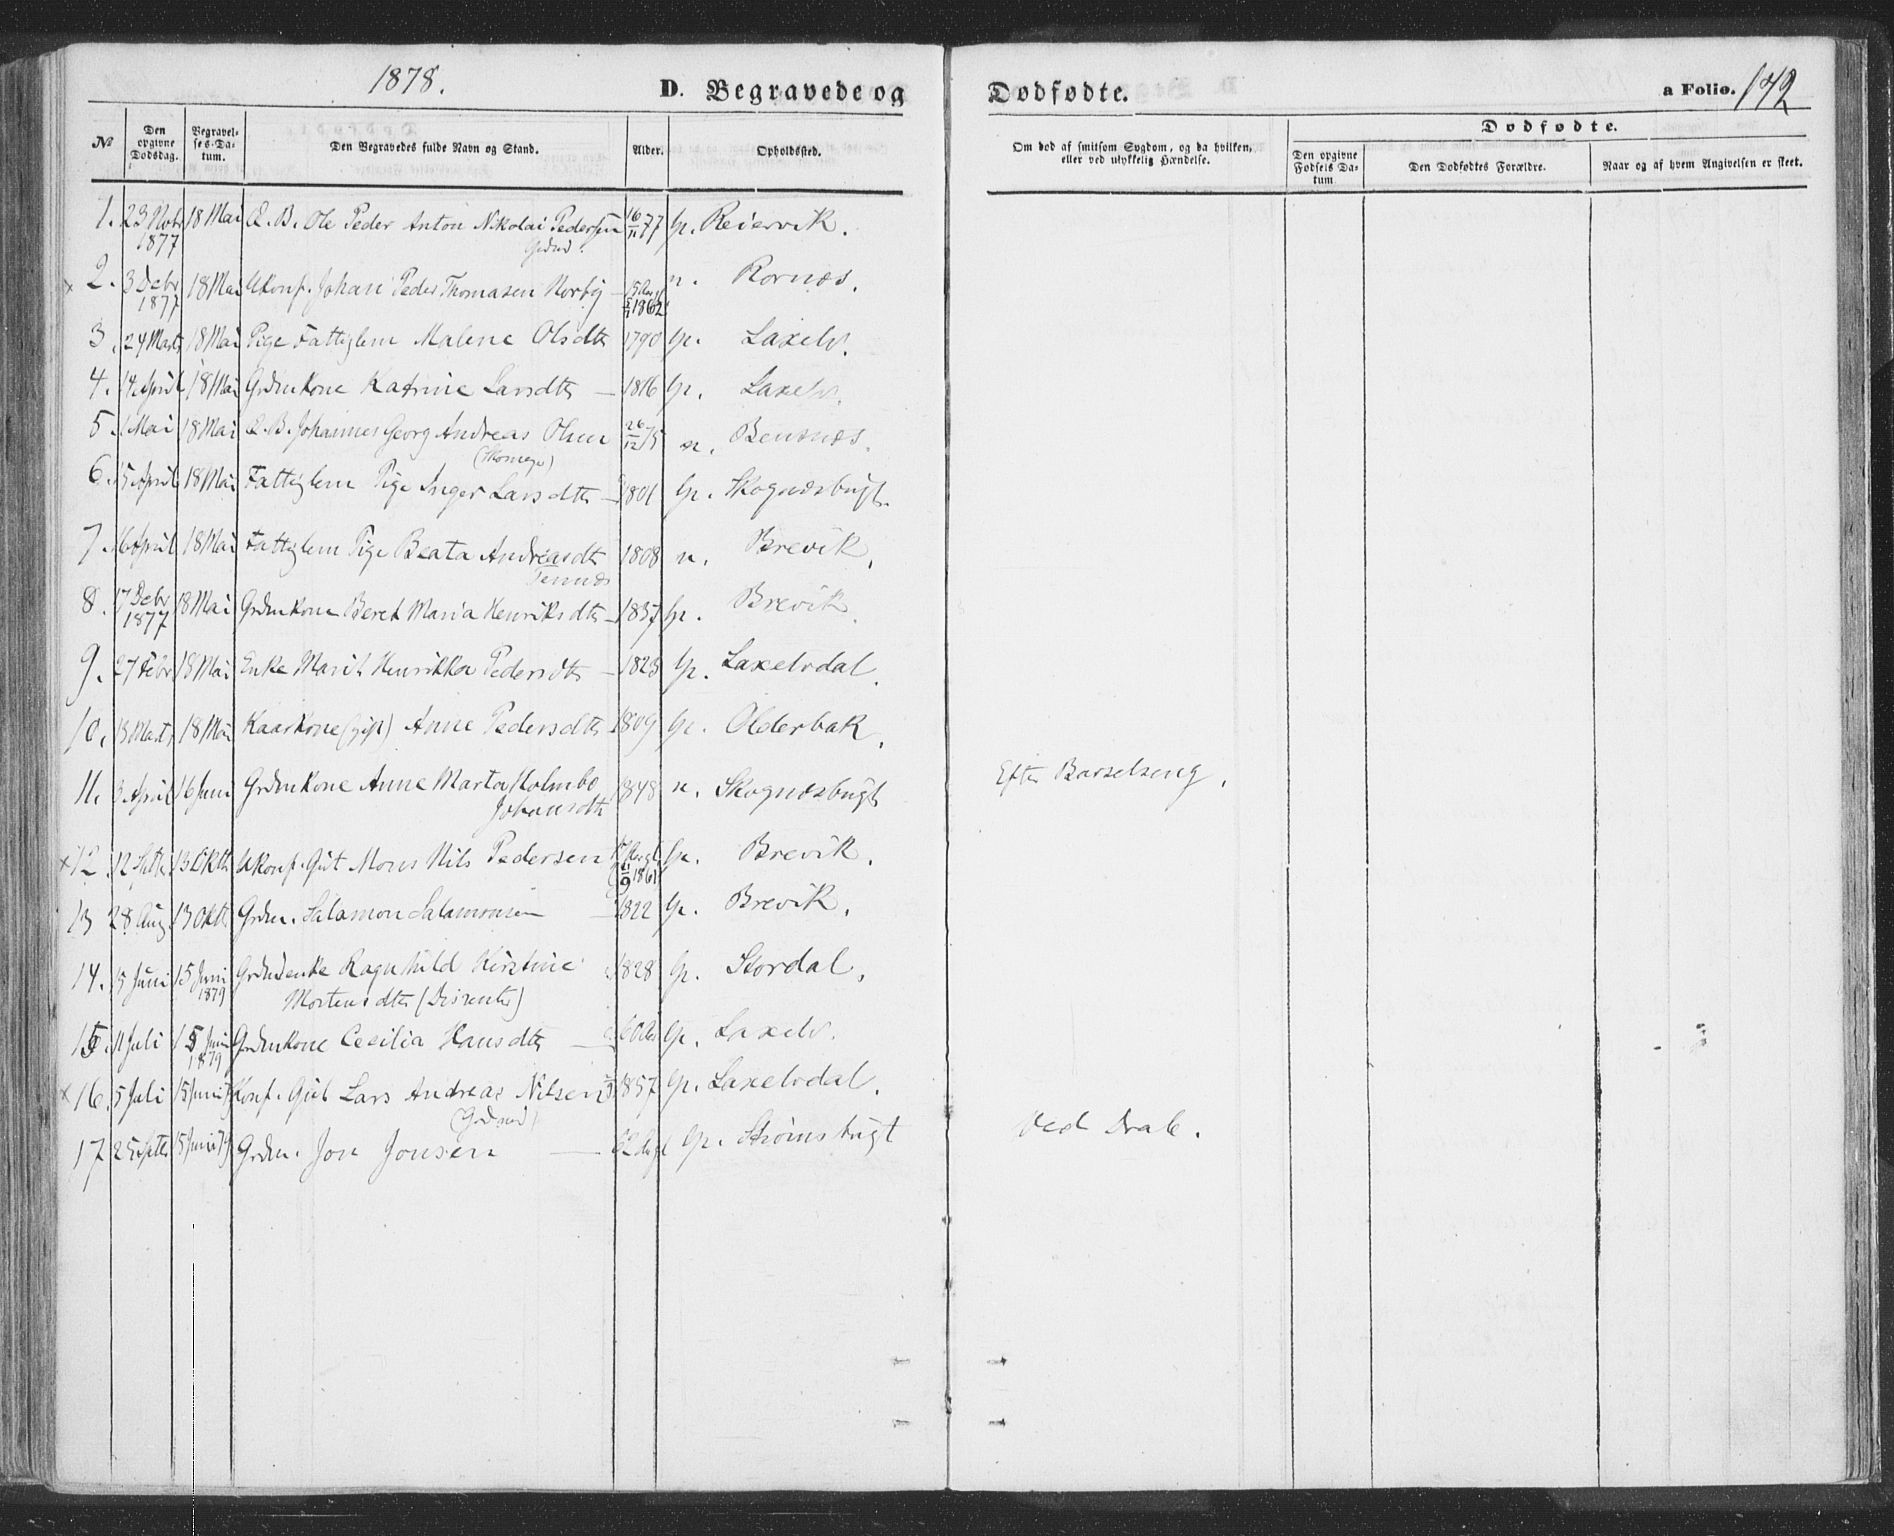 1878.
D. Begravede og Dødfødte. a Folio. 142
Dødfødte.
№ Den opgivne Dødsdag. Begravelses-Datum. Den Begravedes fulde Navn og Stand. Alder. Opholdssted. Om død af smitsom Sygdom, og da hvilken, eller ved ulykkelig Hændelse. Den opgivne Fødsels Datum Den Dødfødtes Forældre. Naar og af hvem Angivelsen er skeet.
1. 23 Novbr 1877 18 Mai Ole Peder Anton Nikolai Pedersen 16/11 77 Reiervik.
2. 3 Debr 1877 18 Mai Ukonf. Johan Peder Thomasen Norby 1862 n. Rornæs.
3. 24 Marts 18 Mai Pige Fattiglem Malene Olsdtr 1790 Gp. Laxelv.
4. 14 April 18 Mai Grdmkone Katrine Larsdtr — 1816 Gp. Laxelv.
5. 1 Mai 18 Mai Johannes Georg Andreas Olsen 26/12 75 n. Bensnæs.
6. 15 April 18 Mai Fattiglem Pige Inger Larsdtr — 1801 Gp. Skognæsbugt.
7. 16 April 18 Mai Fattiglem Pige Beata Andreasdtr 1808 n. Brevik.
Tennæs
8. 17 Debr 1877 18 Mai Grdmkone Beret Maria Henriksdtr — 1837 Gp. Brevik.
9. 27 Febr 18 Mai Enke Marit Henrikka Pedersdtr — 1823 Gp. Laxelvdal.
10. 18 Marts 18 Mai Kaarkone (gift) Anne Pedersdtr 1809 Gp. Olderbak.
11. 3 April 16 Juni Grdmkone Anne Marta Holmbo 1848 n. Skognæsbugt Efter Barselseng.
Johansdtr
12. 12 Septbr 13 Oktbr Ukonf. Gut Mons Nils Pedersen 1861 Gp. Brevik.
13 28 Aug 13 Oktb Grdm. Salamon Salamonsen — 1822 Gp. Brevik.
14. 15 Juni 15 Juni 1879 Grdmdenke Ragnhild Kirstine 1828 Gp. Stordal.
Mortensdtr (Dissenter)
15. 11 Juli 15 Juni 1879 Grdmkone Cecilia Hansdtr — 60 Gp. Laxelv.
16. 5 Juli 15 Juni 79 Konf. Gut Lars Andreas Nilsen 1857 Gp. Laxelvdal.
17 25 Septbr 15 Juni 79 Grdm. Jon Jonsen — 62 Gp. Strømsbugt Ved Drab.